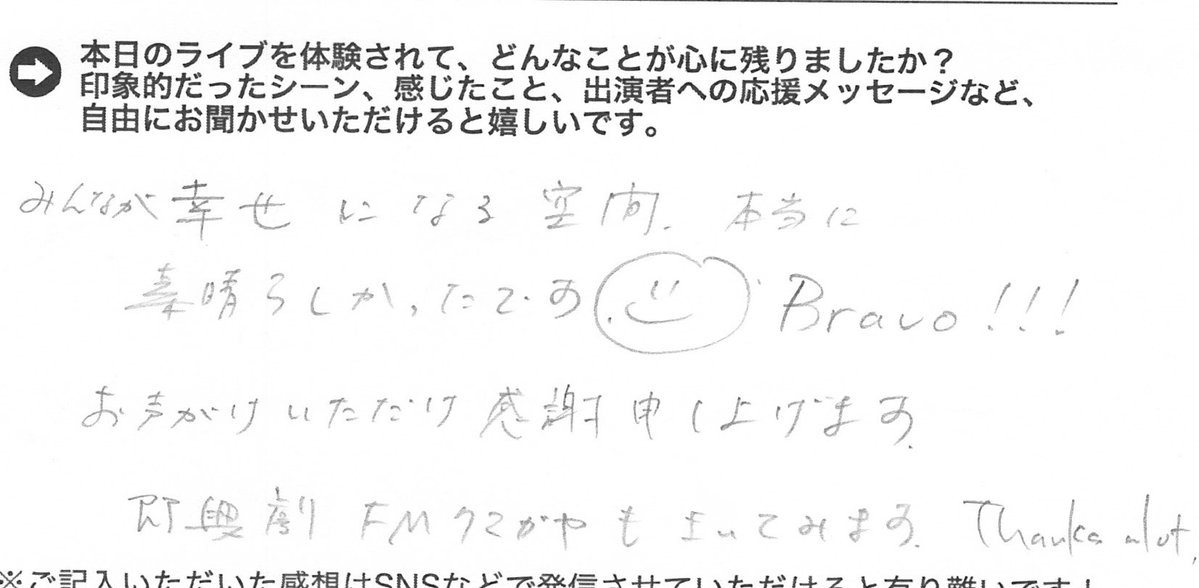 本日のライブを体験されて、どんなことが心に残りましたか？
印象的だったシーン、感じたこと、出演者への応援メッセージなど、
自由にお聞かせいただけると嬉しいです。
みんなが幸せになる空間. 本当に
素晴らしかったです Bravo!!!
お声がけいただけ感謝申し上げます
即興劇 FMクマガヤも まいてみます. Thanks alot,
※ご記入いただいた感想はSNSなどで発信させていただけると有り難いです！